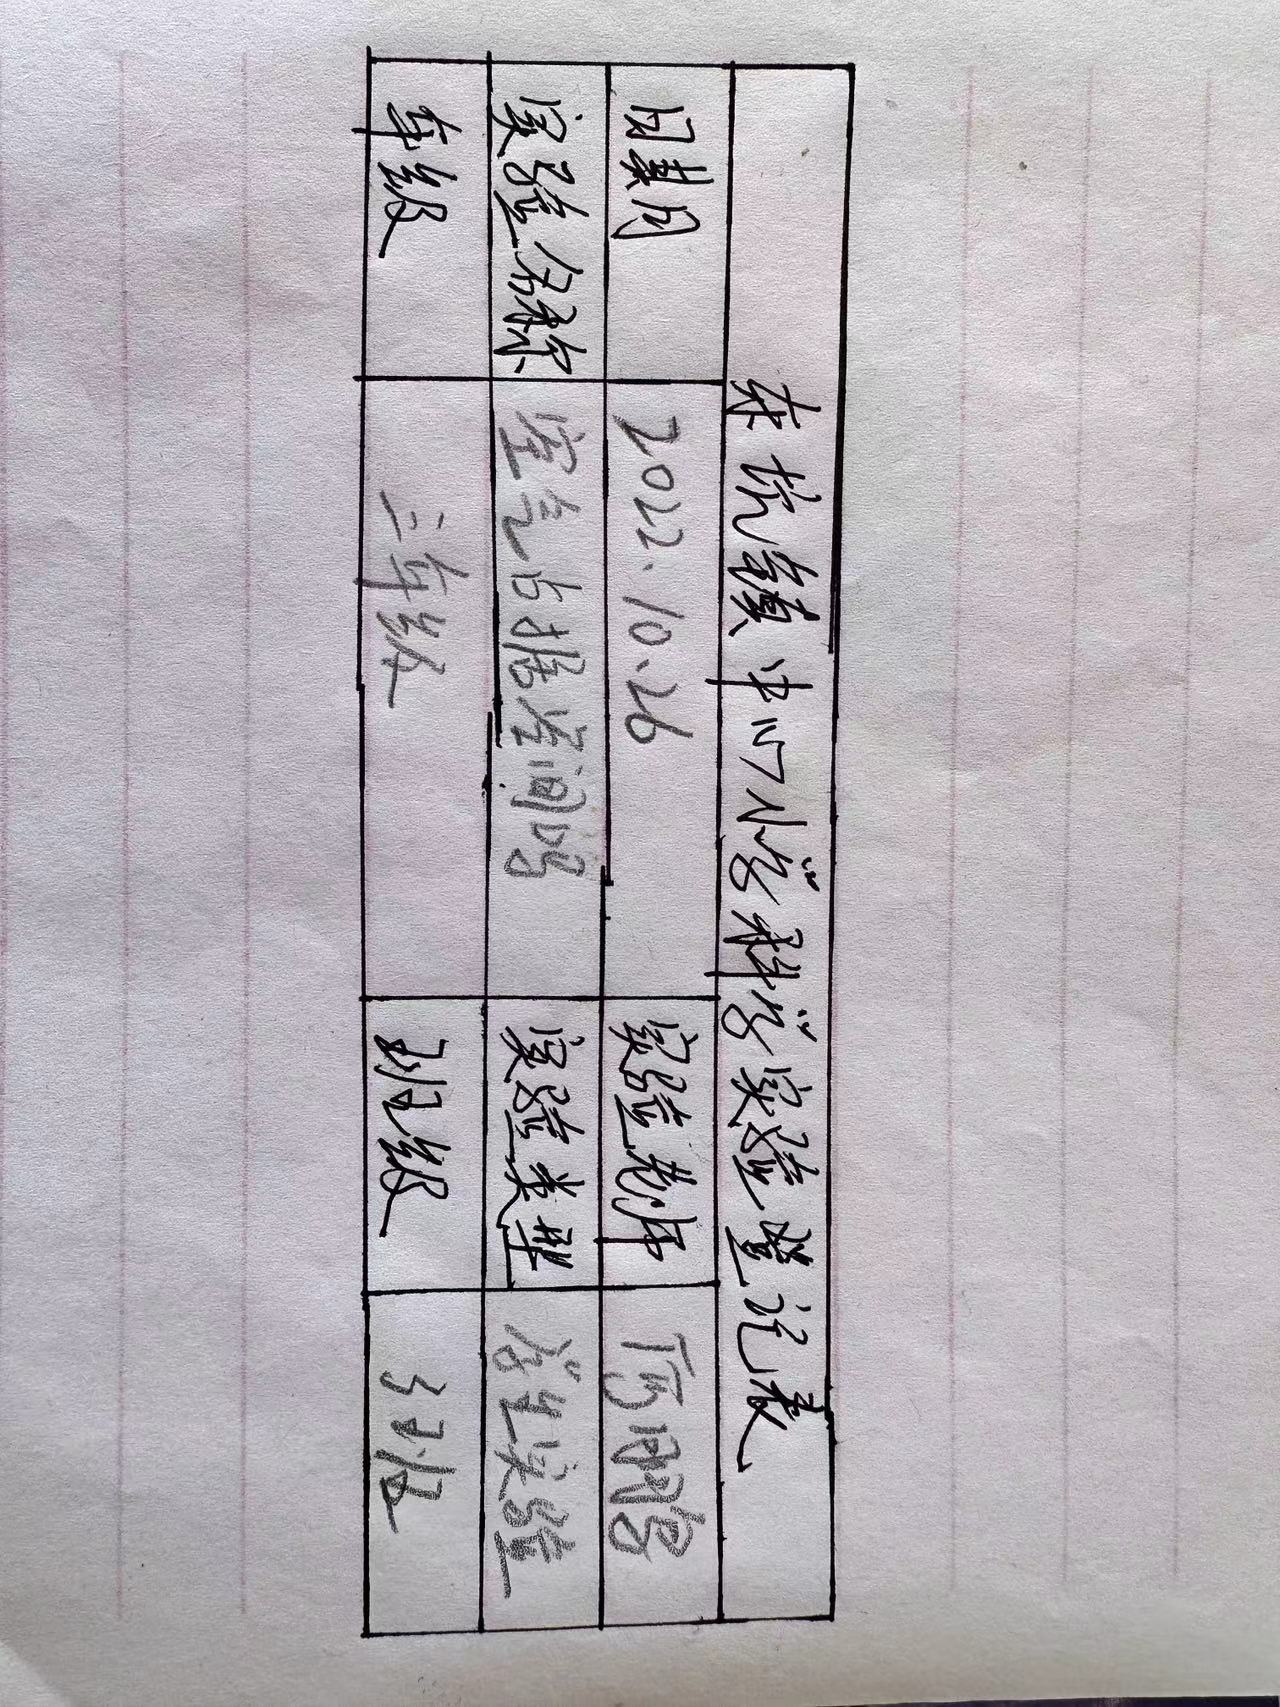 坑镇中心小学科学实验登记表
日期 2022.10.26 实验老师
实验名称 空气占据空间吗 实验类型 学生实验
年级 三年级 班级 3班